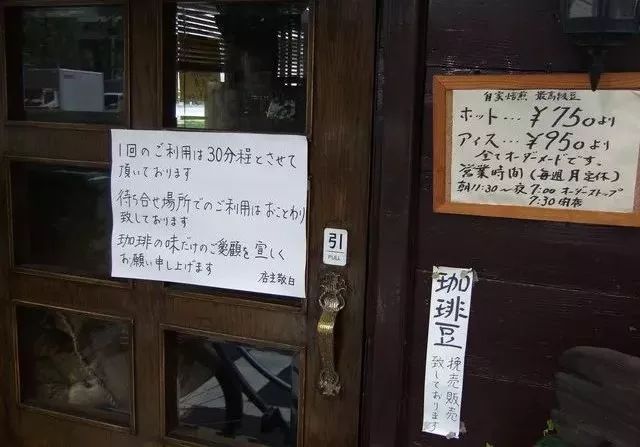 1回のご利用は30分程とさせて
頂いております
待ち合せ場所でのご利用はおことわり
致しております
珈琲の味だけのご愛顧を宜しく
お願い申し上げます
店主敬白
引
PULL
自家焙煎 最高級豆
ホット…¥750より
アイス…¥950より
全てオーダーメードです。
営業時間(毎週月定休)
朝11:30～夜7:00オーダーストップ
7:30閉店
珈琲豆
挽売販売
致しております